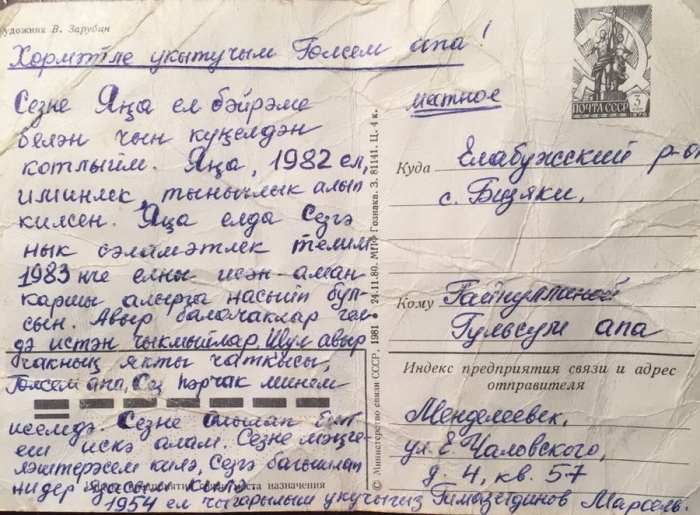 удожник В. Зарубин
Хөрмәтле укытучым Гөлсем апа!
Сезне Яңа ел бәйрәме
белән чын күңелдән
котлыйм. Яңа, 1982 ел,
иминлек, тынычлык алып
килсен. Яңа елда Сезгә
нык сәламәтлек телим
1983 нче елны исән-аман
каршы алырга насыйп бул-
сын. Авыр балачаклар гел
дә истән чыкмыйлар. Шул авыр
чакның якты чаткысы,
Гөлсем апа, Сез һәрчак минем
исемдә. Сезне олылап
еш искә алам. Сезне мәңге
ләштерәсем килә, Сезгә багышлап
нидер язасы килә.
1954 ел чыгарылыш укучыгыз Гимазетдинов Марсель.
© Министерство связи СССР, 1981 • 24.11.80. МПФ Гознака. З. 81141. Ц. 4 к.
ПОЧТА СССР
3
1976
Куда Елабужский р-он
с. Бизяки,
Кому Гайнуллиной
Гульсум апа
Индекс предприятия связи и адрес
отправителя
Менделеевск,
ул. Е. Чаловского,
д. 4, кв. 57
места назначения